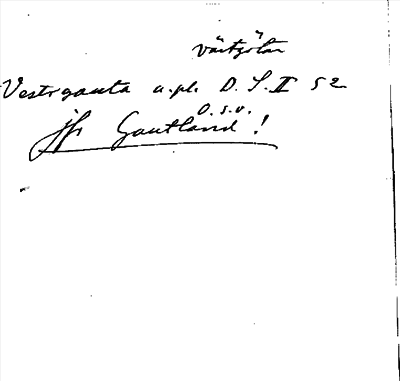 västgötar
Vestrgauta a.pl. D.S. II 52
o.s.v.
jfr Gautland!